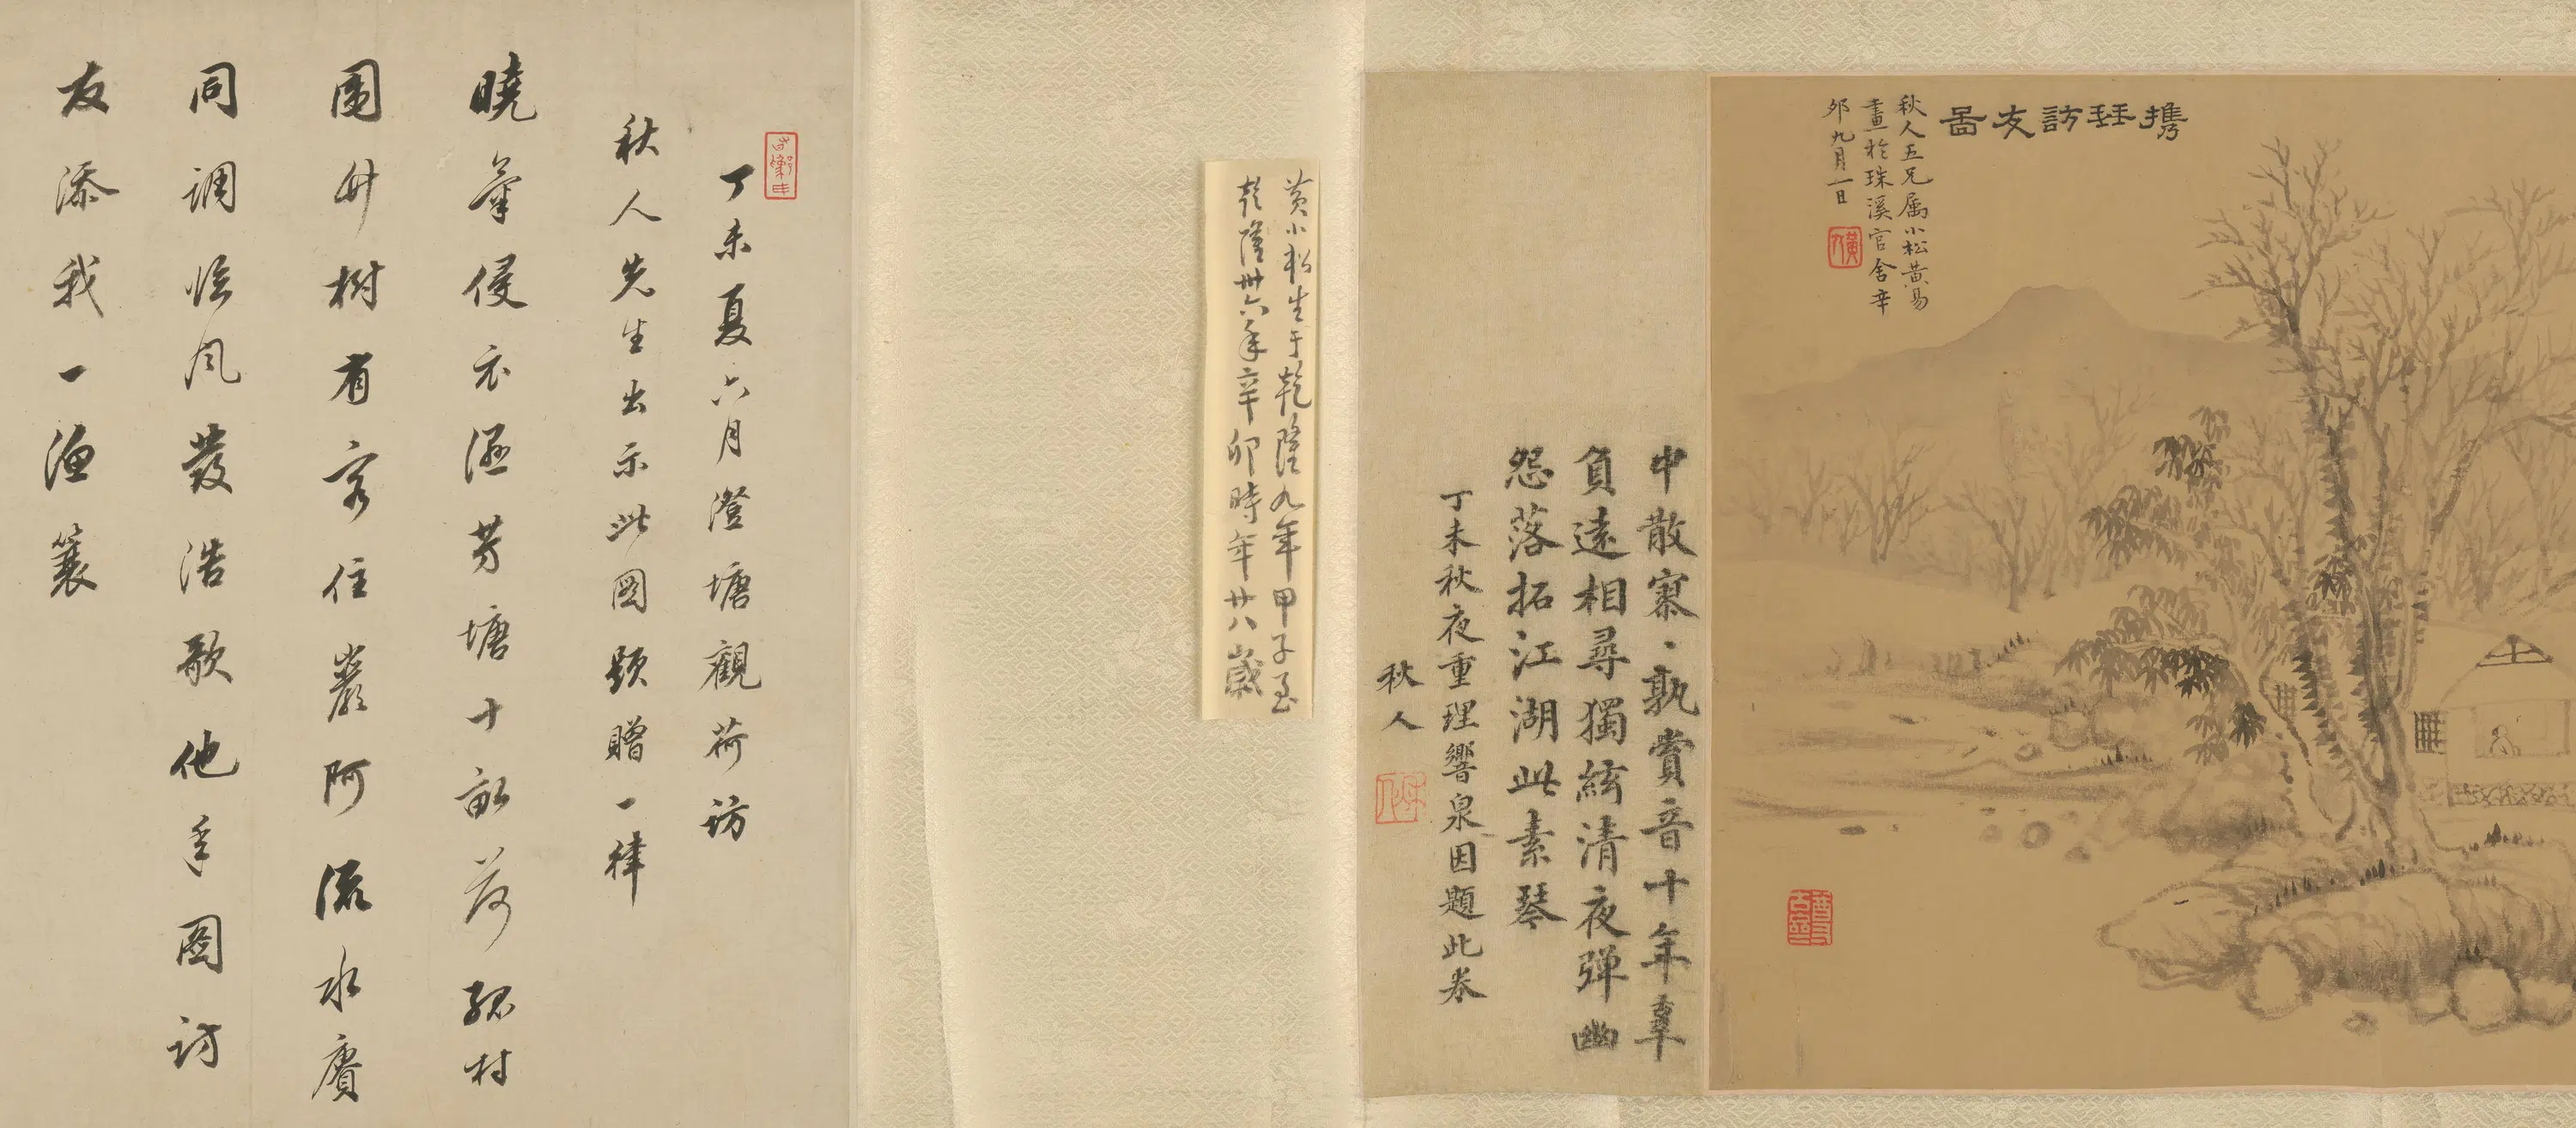 攜琴訪友圖
秋人五兄属小松黃易
畫於珠溪官舍辛
卯九月一日
中散寥、孰賞音十年辜
負遠相尋獨絃清夜彈幽
怨落拓江湖此素琴
丁未秋夜重理響泉因題此卷
秋人
黃小松生于乾隆九年甲子至
乾隆卅六年辛卯時年廿八歲
丁未夏六月澄塘觀荷訪
秋人先生出示此圖題贈一律
曉氣侵衣溼芳塘十畝荷孤村
圍竹樹有客住巖阿流水賡
同調臨風發浩歌他年圖訪
友添我一漁蓑